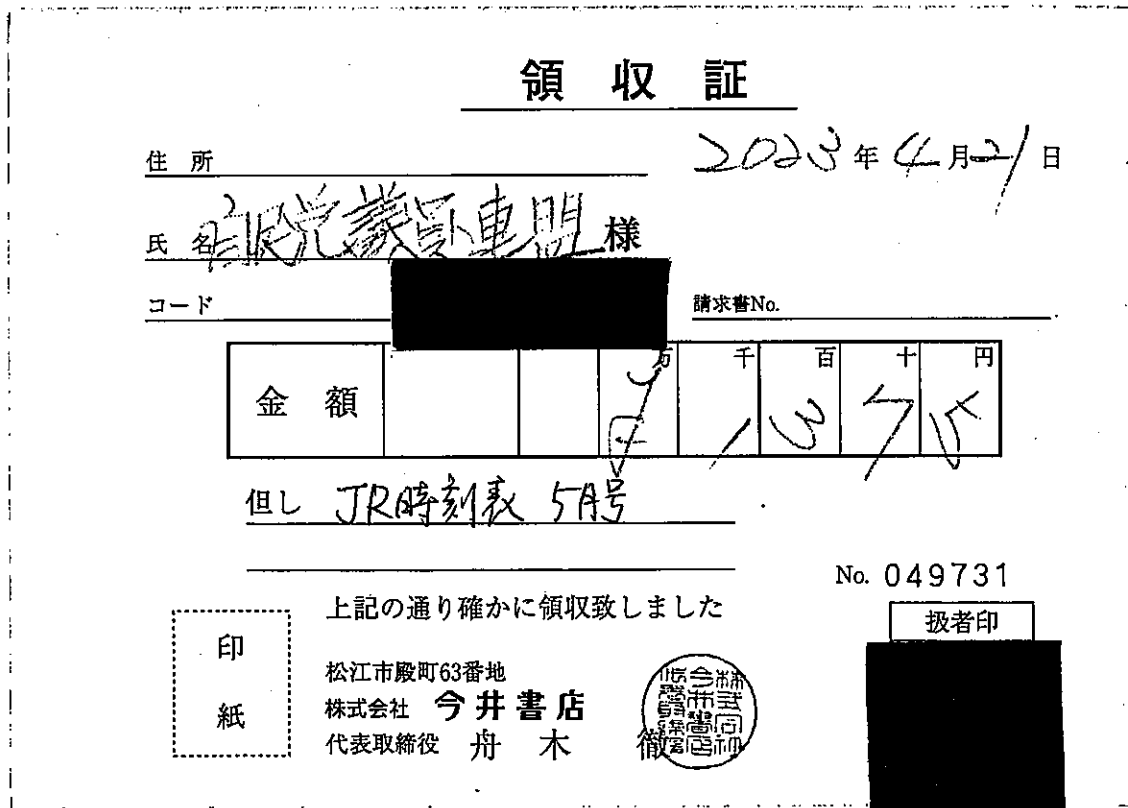 領収証
住所
2023年4月21日
氏名 自民党議員連盟 様
コード
請求書No.
金額 万 千 百 十 円
¥ 1 3 7 5
但し JR時刻表 5月号
No. 049731
上記の通り確かに領収致しました
扱者印
印紙
松江市殿町63番地
株式会社 今井書店
代表取締役 舟木 徹